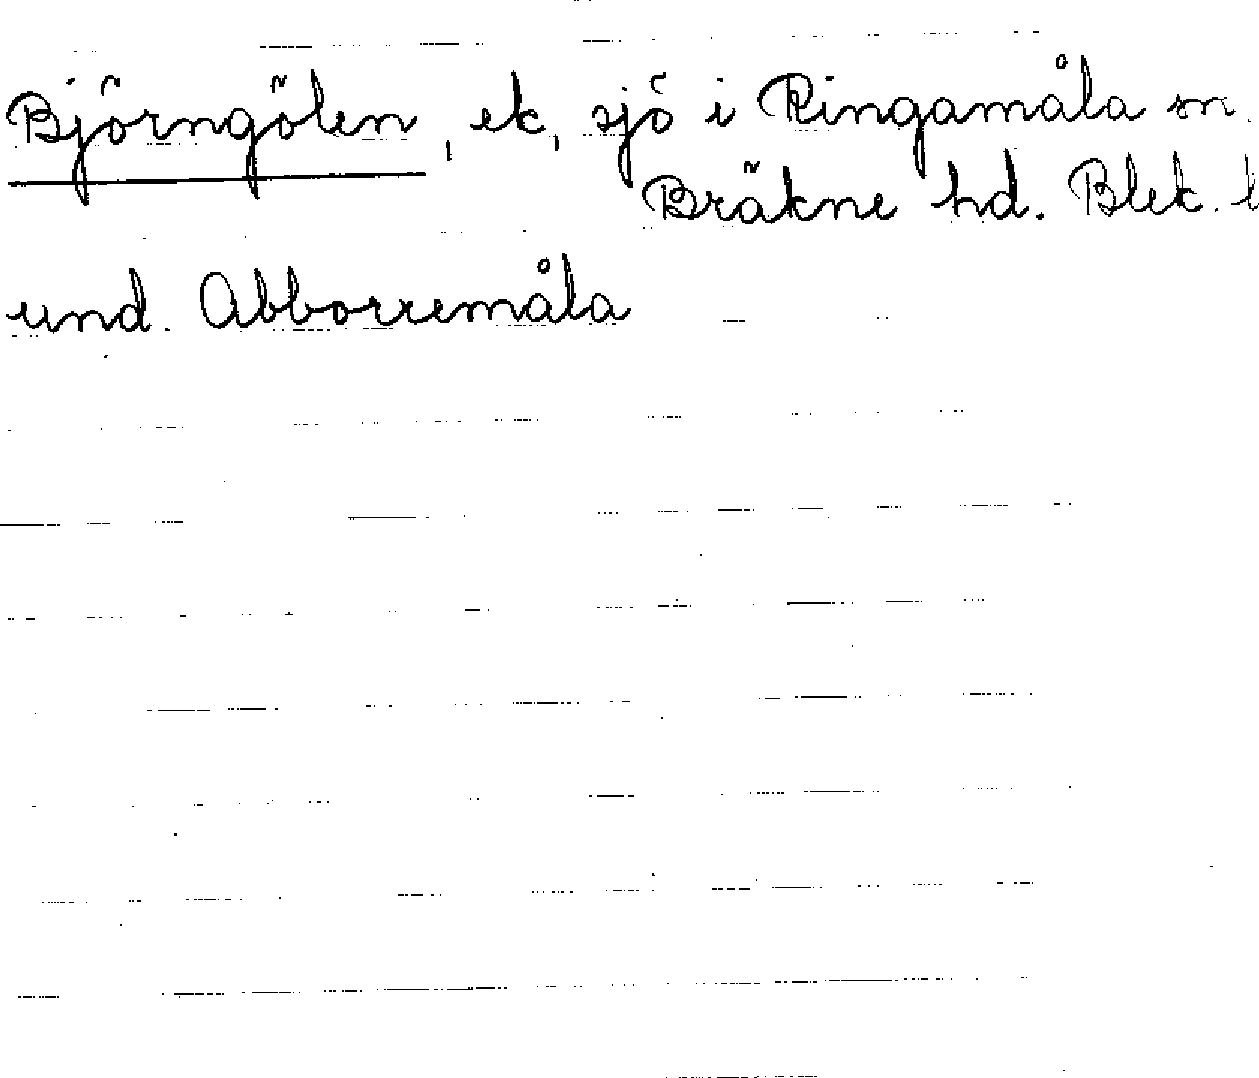 Björngölen, ek, sjö i Ringamåla sn.
Bräkne hd. Blek. l
und. Abborremåla